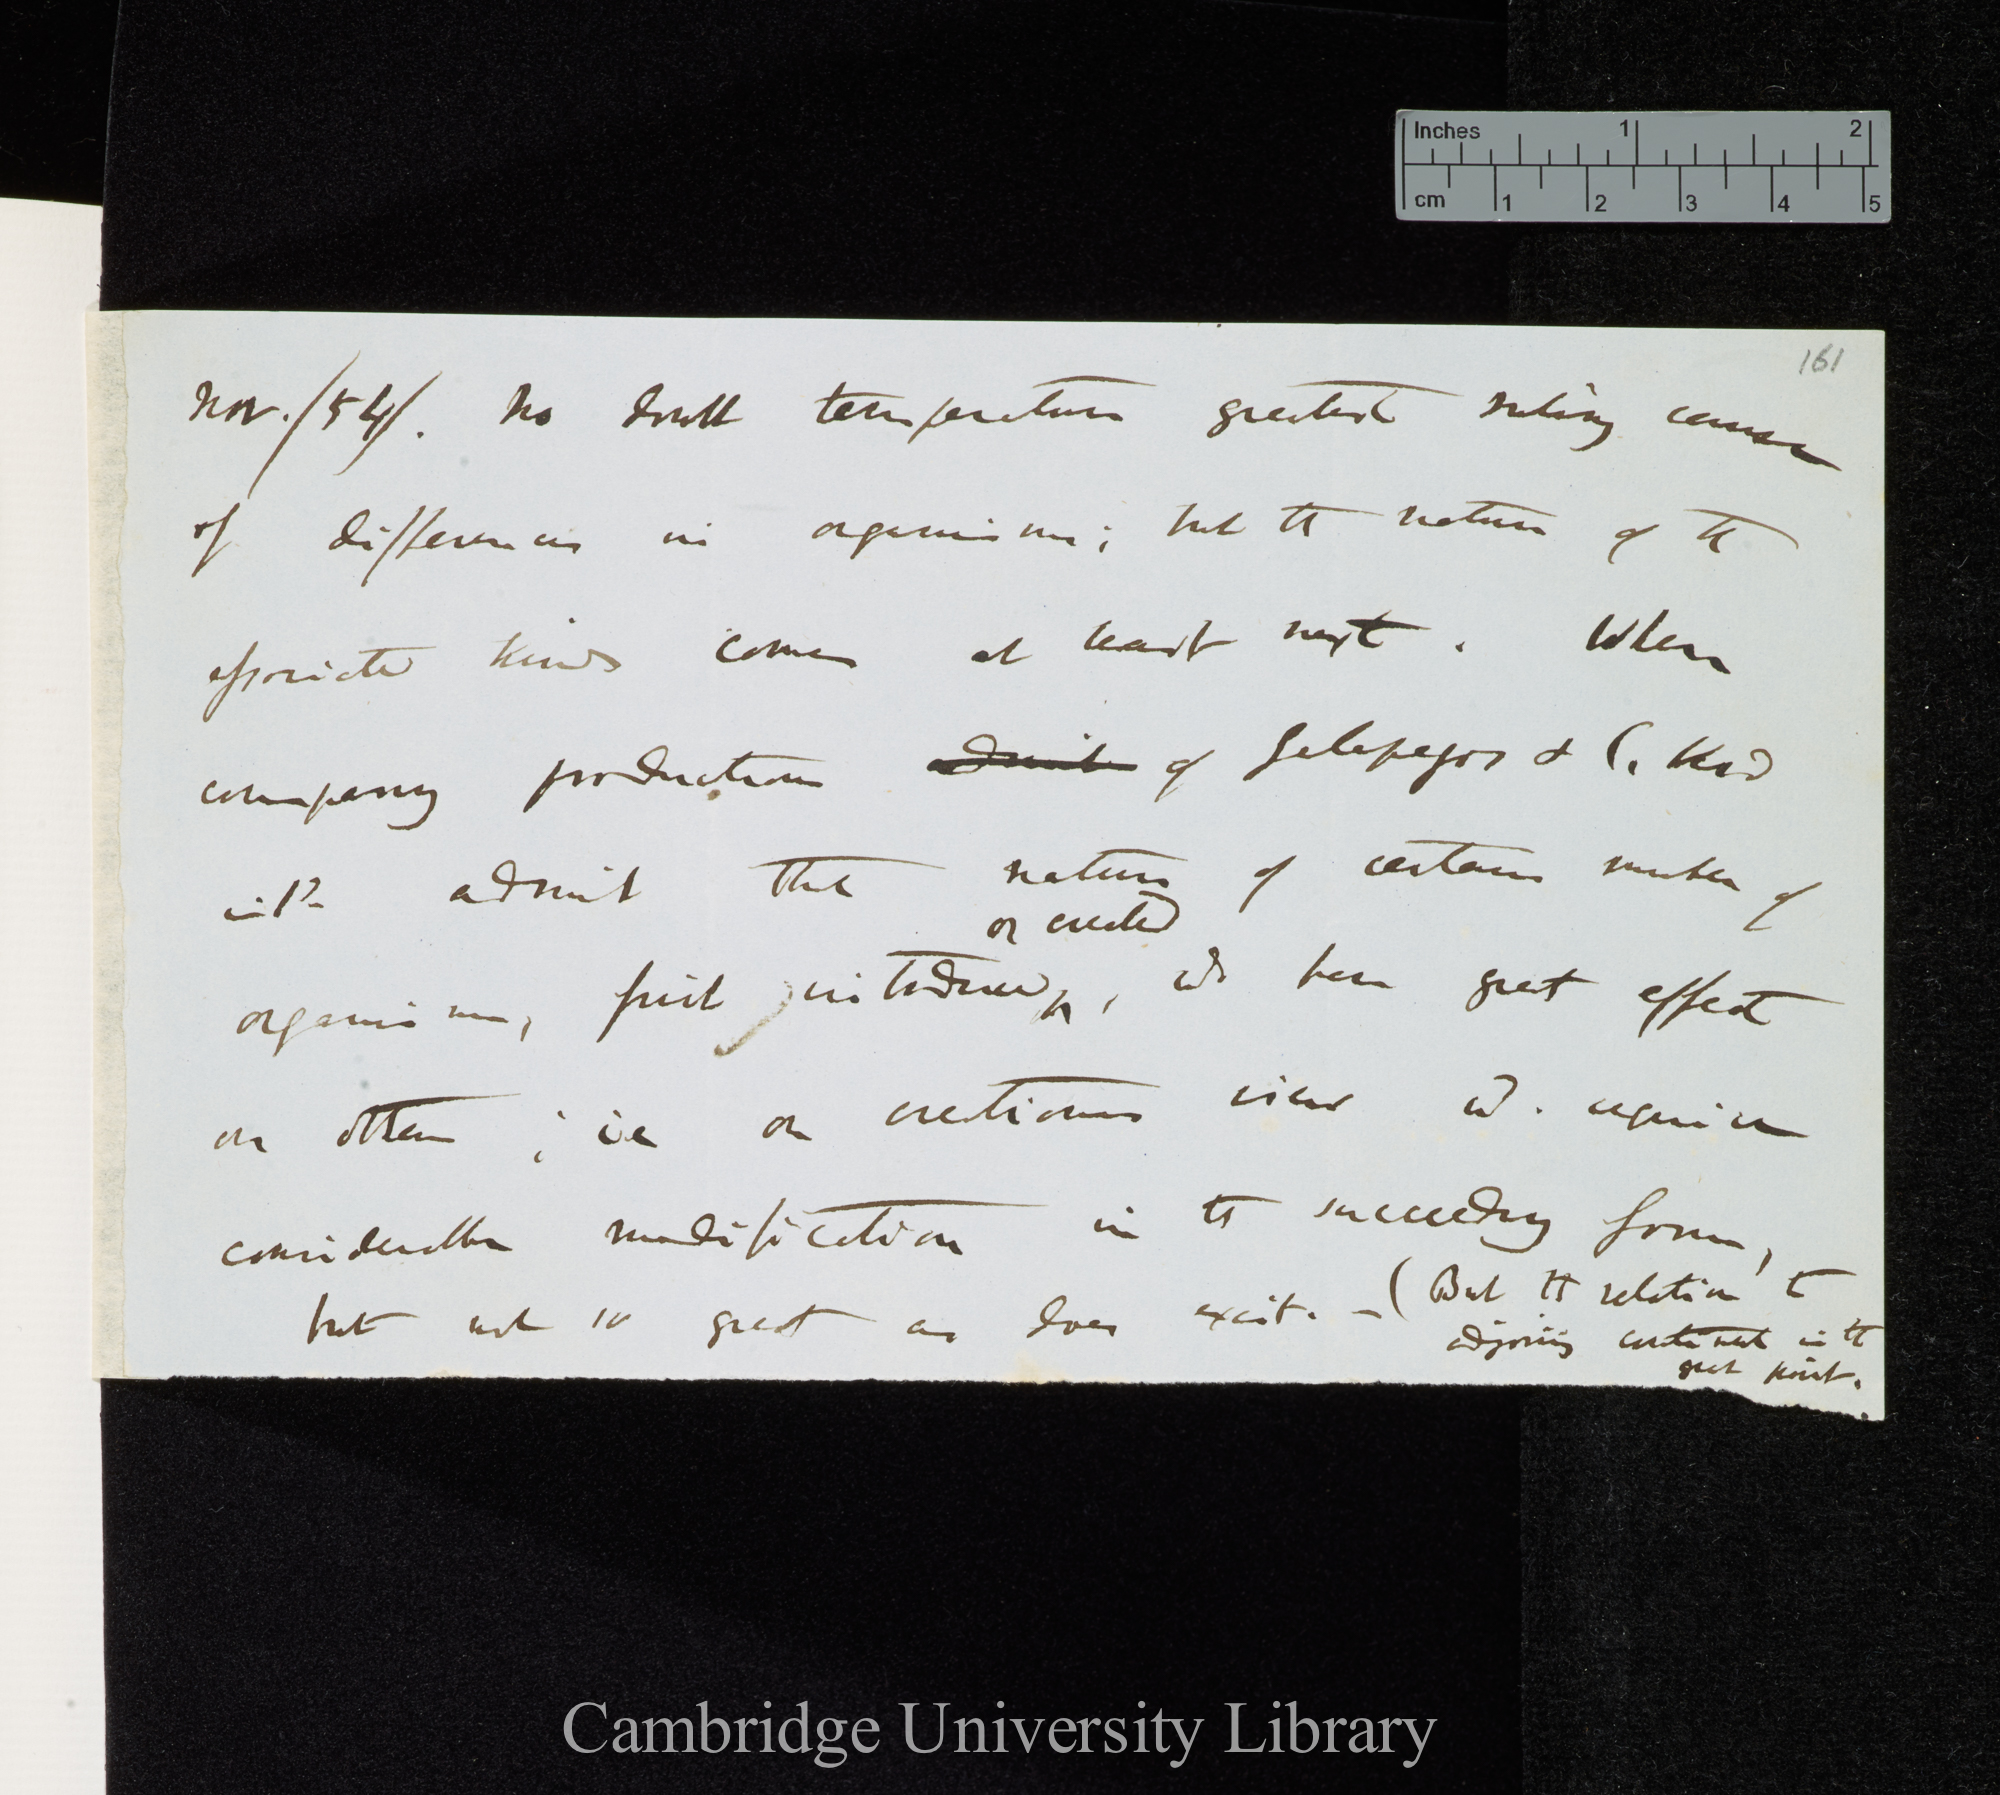 Inches 1 2
cm 1 2 3 4 5
161
Nov. /54/. No doubt temperature greatest ruling cause
of differences in organisms; but the nature of the
associated kinds comes at least next. When
comparing productions admit of Galapagos & C. Verd
admit that nature of certain number of
or created
organisms, first introduced, wd have great effect
on others; i.e on creationist view wd. require
considerable modification in the succeeding forms,
but not so great as does exist. — (But the relation to
adjoining continent is the
great point.
Cambridge University Library